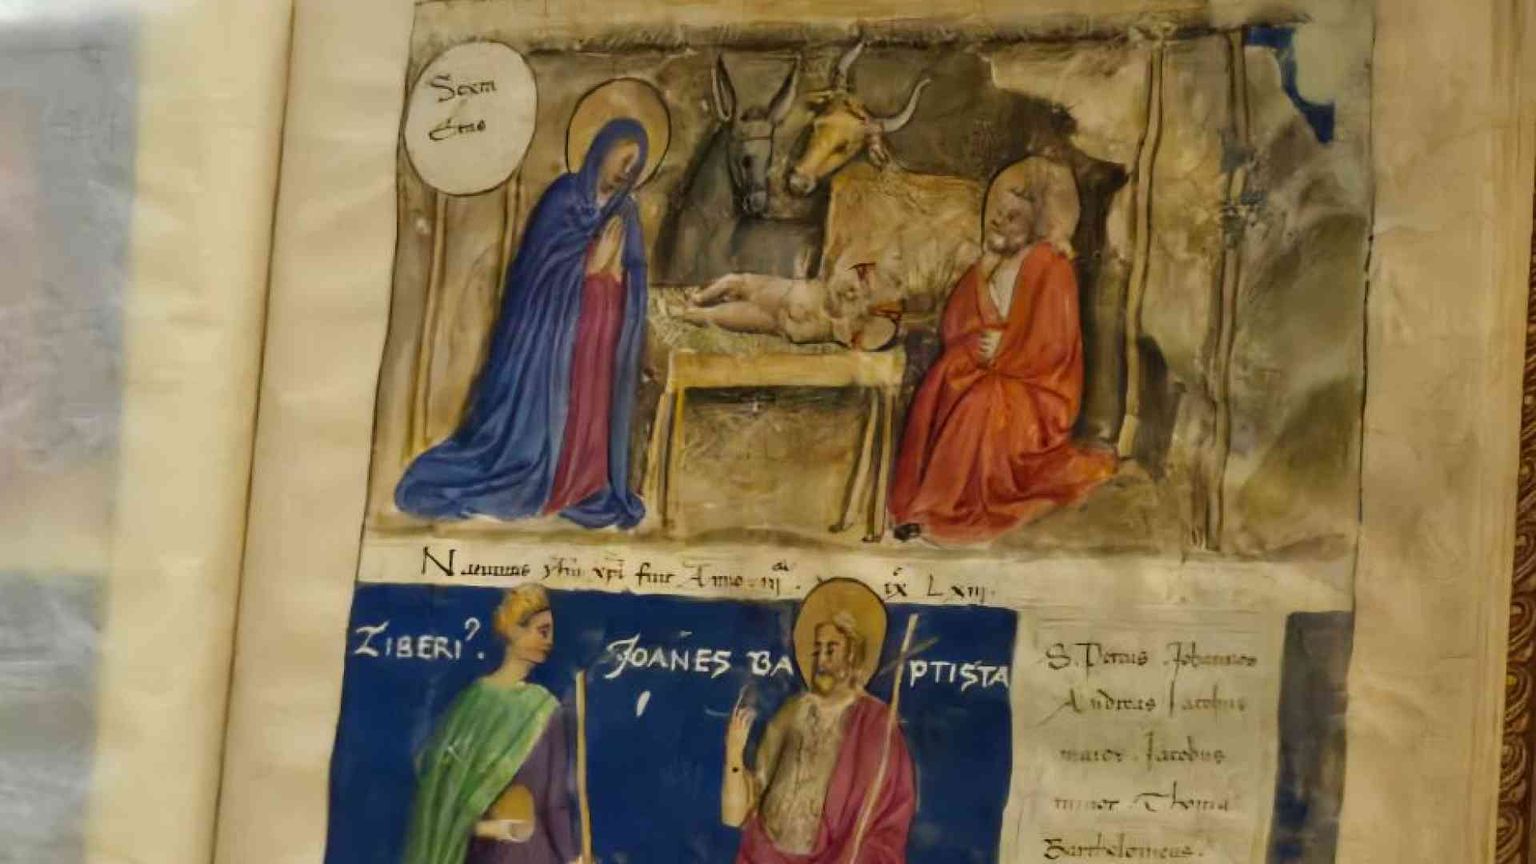 Sexta
Etas
Natiuitas yhu xpi fuit Anno iii . ix Lxiii.
TIBERI?.
JOANES BAPTISTA
S. Petrus Johannes
Andreas Jacobus
maior Jacobus
minor Thoma
Bartholomeus.